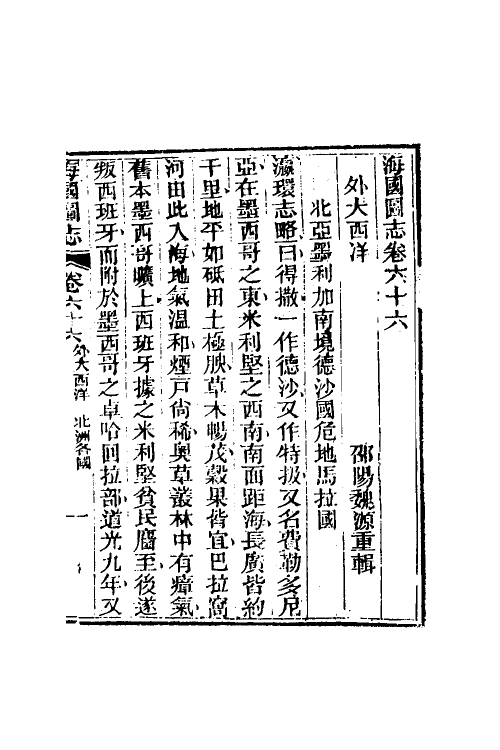 海國圖志卷六十六
外大西洋
邵陽魏源重輯
北亞墨利加南境德沙國危地馬拉國
瀛環志略曰得撒一作德沙又作特扱又名費勒多尼
亞在墨西哥之東米利堅之西南南面距海長廣皆約
千里地平如砥田土極腴草木暢茂穀果皆宜巴拉窩
河由此入海地氣溫和煙戶尙稀奥草叢林中有瘴氣
舊本墨西哥曠土西班牙據之米利堅貧民闟至後遂
叛西班牙而附於墨西哥之卓哈回拉部道光九年又
海國圖志
卷六十六
外大西洋 北洲各國
一